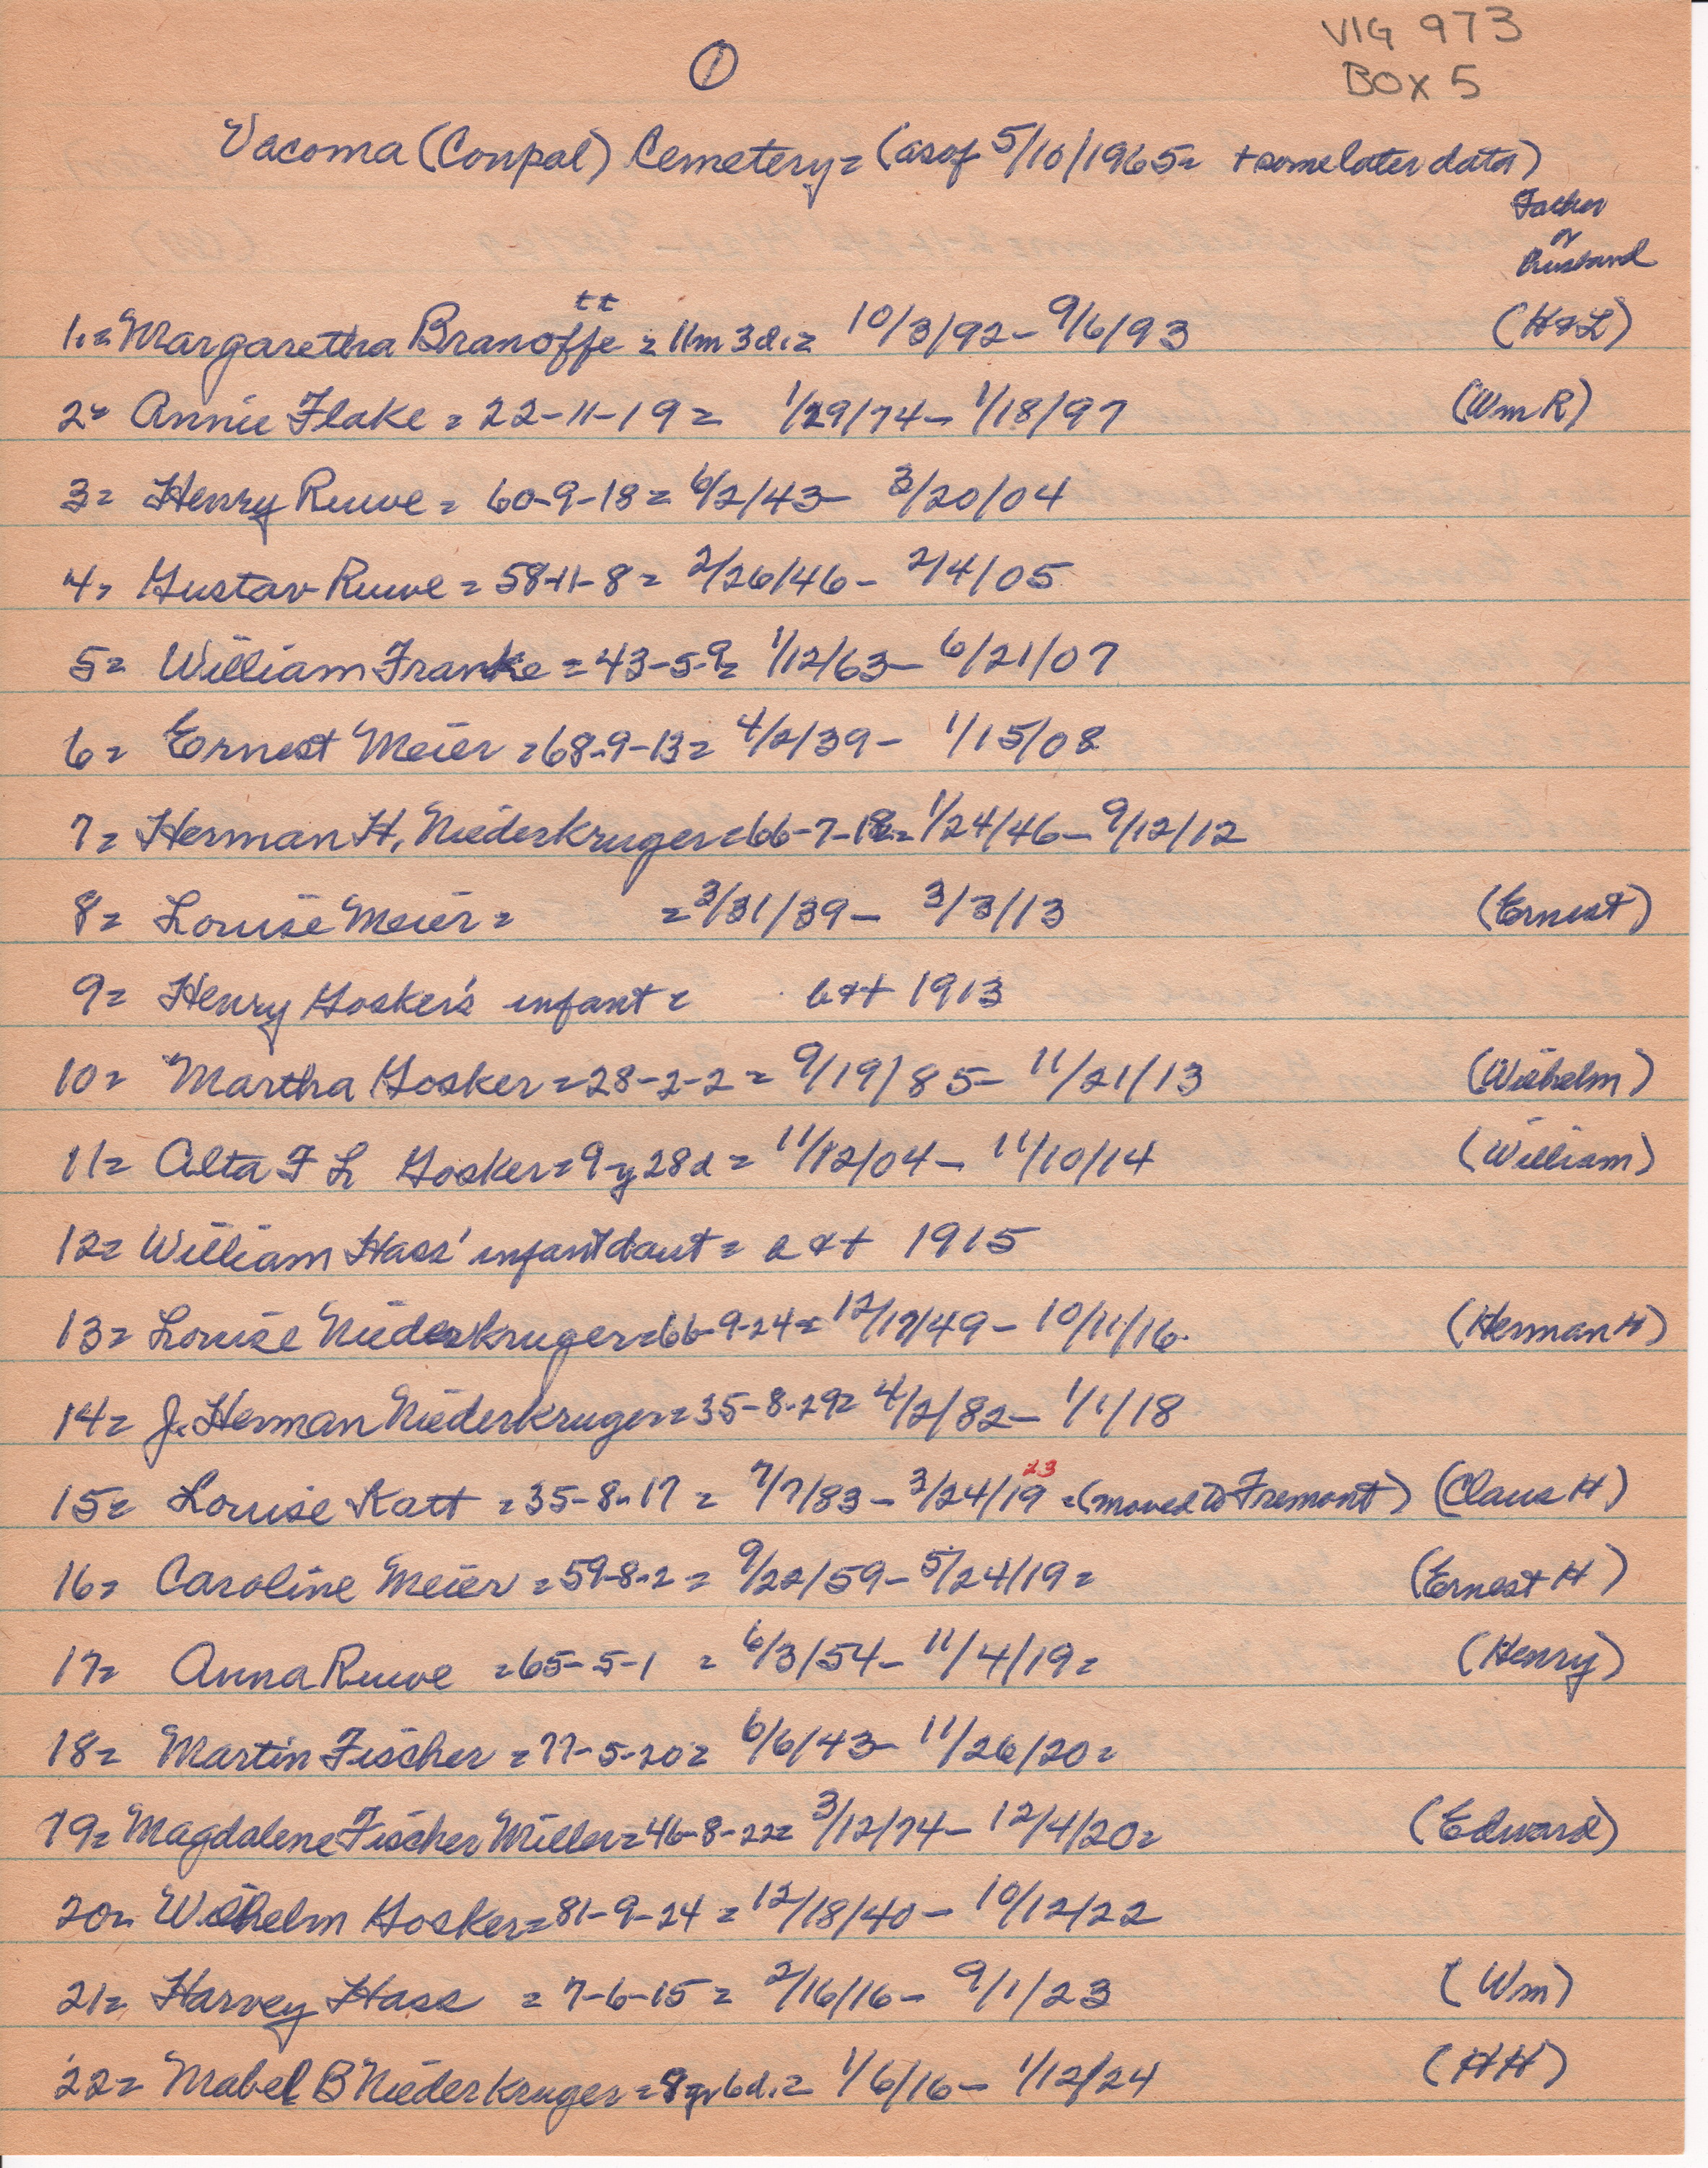 VIG 973
BOX 5
1
Vacoma (Conpal) Cemetery = (as of 5/10/1965 = + some later data)
Father
or
Husband
tt
1. = Margaretha Branoffe = 11m 3d. = 10/3/92 - 9/6/93 (H & L)
2 = Annie Flake = 22-11-19 = 1/29/74 - 1/18/97 (Wm R)
3 = Henry Ruwe = 60-9-18 = 6/2/43 - 3/20/04
4 = Gustav Ruwe = 58-11-8 = 2/26/46 - 2/4/05
5 = William Franke = 43-5-9 = 1/12/63 - 6/21/07
6 = Ernest Meier = 68-9-13 = 4/2/39 - 1/15/08
7 = Herman H. Niederkruger = 66-7-18 = 1/24/46 - 9/12/12
8 = Louise Meier = = 3/31/39 - 3/3/13 (Ernest)
9 = Henry Gosker's infant = b & + 1913
10 = Martha Gosker = 28-2-2 = 9/19/85 - 11/21/13 (Wilhelm)
11 = Alta F L Gosker = 9 y 28d = 11/12/04 - 11/10/14 (William)
12 = William Hass' infant daut = & + 1915
13 = Louise Niederkruger = 66-9-24 = 12/17/49 - 10/11/16. (Herman H)
14 = J. Herman Niederkruger = 35-8-29 = 4/2/82 - 1/1/18
23
15 = Louise Katt = 35-8-17 = 7/7/83 - 3/24/19 = (moved to Fremont) (Claus H)
16 = Caroline Meier = 59-8-2 = 9/22/59 - 5/24/19 = (Ernest H)
17 = Anna Ruwe = 65-5-1 = 6/3/54 - 11/4/19 = (Henry)
18 = Martin Fischer = 77-5-20 = 6/6/43 - 11/26/20 =
19 = Magdalene Fischer Miller = 46-8-22 = 3/12/74 - 12/4/20 = (Edward)
20 = Wilhelm Gosker = 81-9-24 = 12/18/40 - 10/12/22
21 = Harvey Hass = 7-6-15 = 2/16/16 - 9/1/23 (Wm)
22 = Mabel B Niederkruger = 8 yr 6d. = 1/6/16 - 1/12/24 (H H)